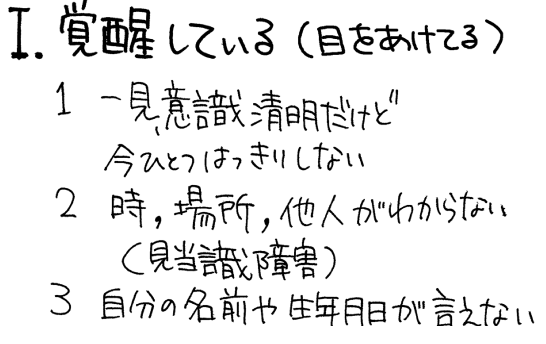 I. 覚醒している（目をあけてる）
1 一見、意識清明だけど
今ひとつはっきりしない
2 時，場所，他人がわからない
（見当識障害）
3 自分の名前や生年月日が言えない